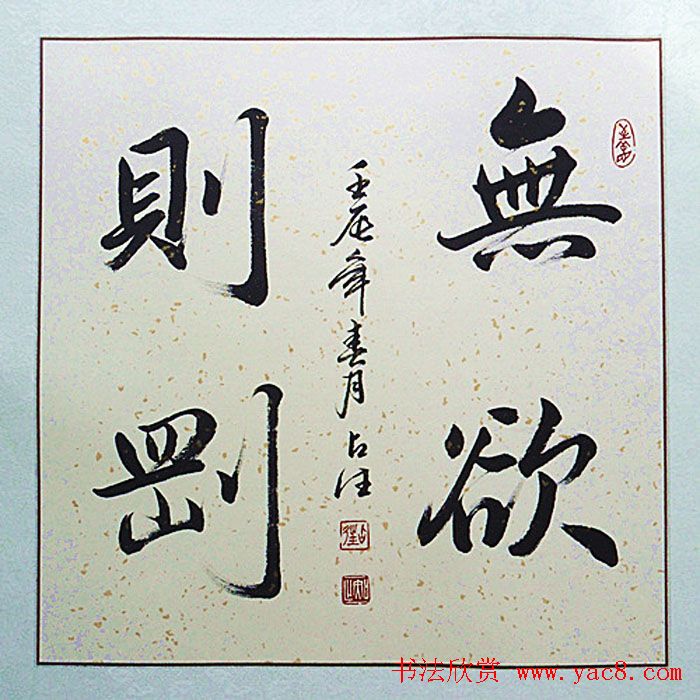 無欲
則剛
壬辰年春月占
书法欣赏 www.yac8.com